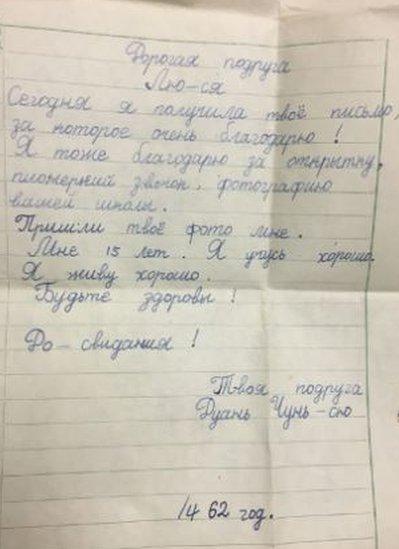 Дорогая подруга
Лю-ся
Сегодня я получила твоё письмо,
за которое очень благодарю!
Я тоже благодарю за открытку,
пионерский звонок, фотографию
вашей школы.
Пришли твоё фото мне.
Мне 15 лет. Я учусь хорошо.
Я живу хорошо.
Будьте здоровы!
До-свидания!
Твоя подруга
Дуань Чунь-сю
14 62 год.